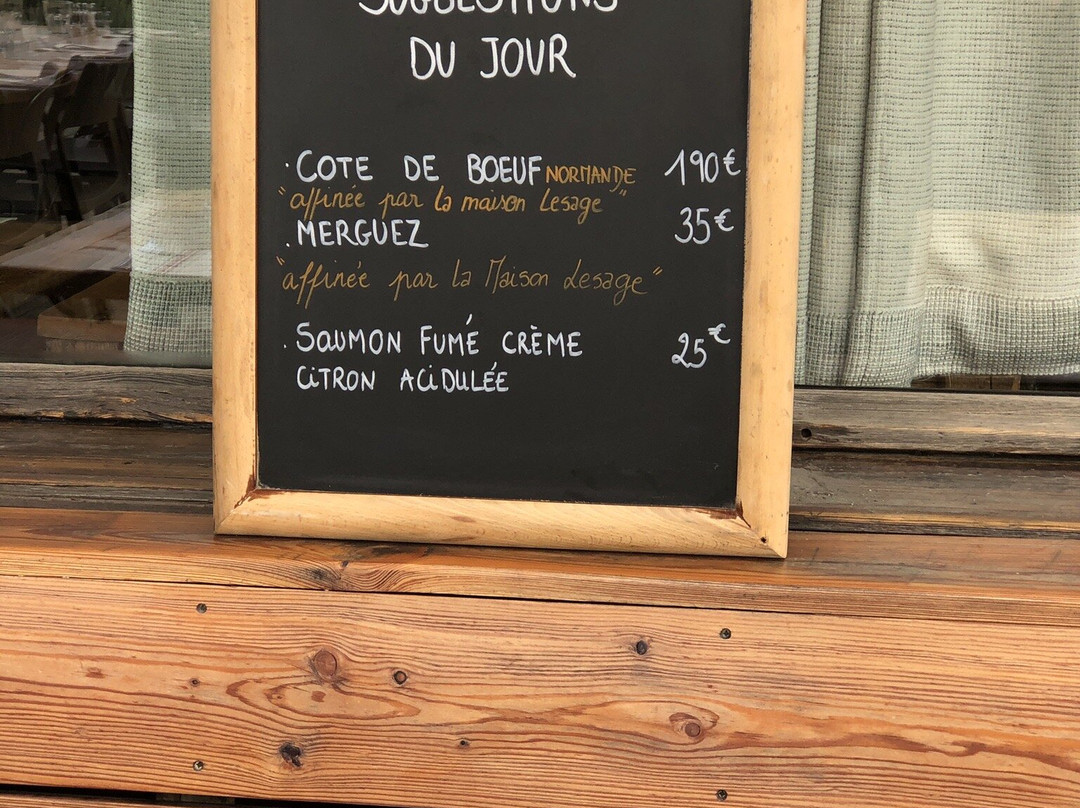 SUGGESTIONS
DU JOUR
· COTE DE BOEUF NORMANDE 190€
"affinée par la maison Lesage"
. MERGUEZ 35€
"affinée par la Maison Lesage"
. SAUMON FUMÉ CRÈME 25€
CiTRON ACiDULÉE